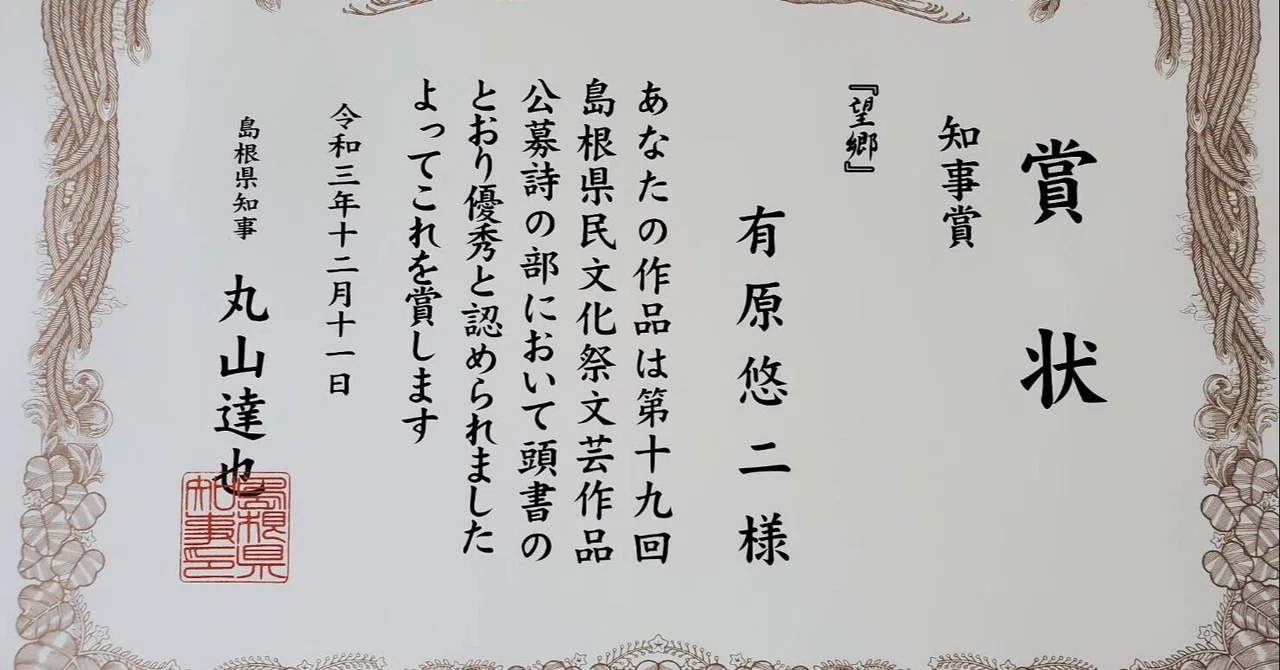 賞状
知事賞
『望郷』
有原悠二様
あなたの作品は第十九回
島根県民文化祭文芸作品
公募詩の部において頭書の
とおり優秀と認められました
よってこれを賞します
令和三年十二月十一日
島根県知事 丸山達也
島根県
知事印